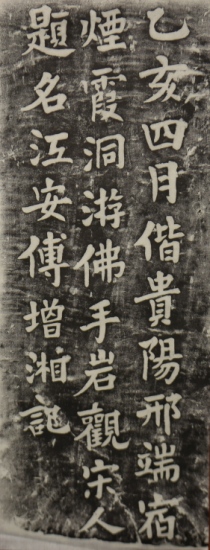 乙亥四月偕貴陽邢端宿
煙霞洞游佛手岩觀宋人
題名江安傅增湘記